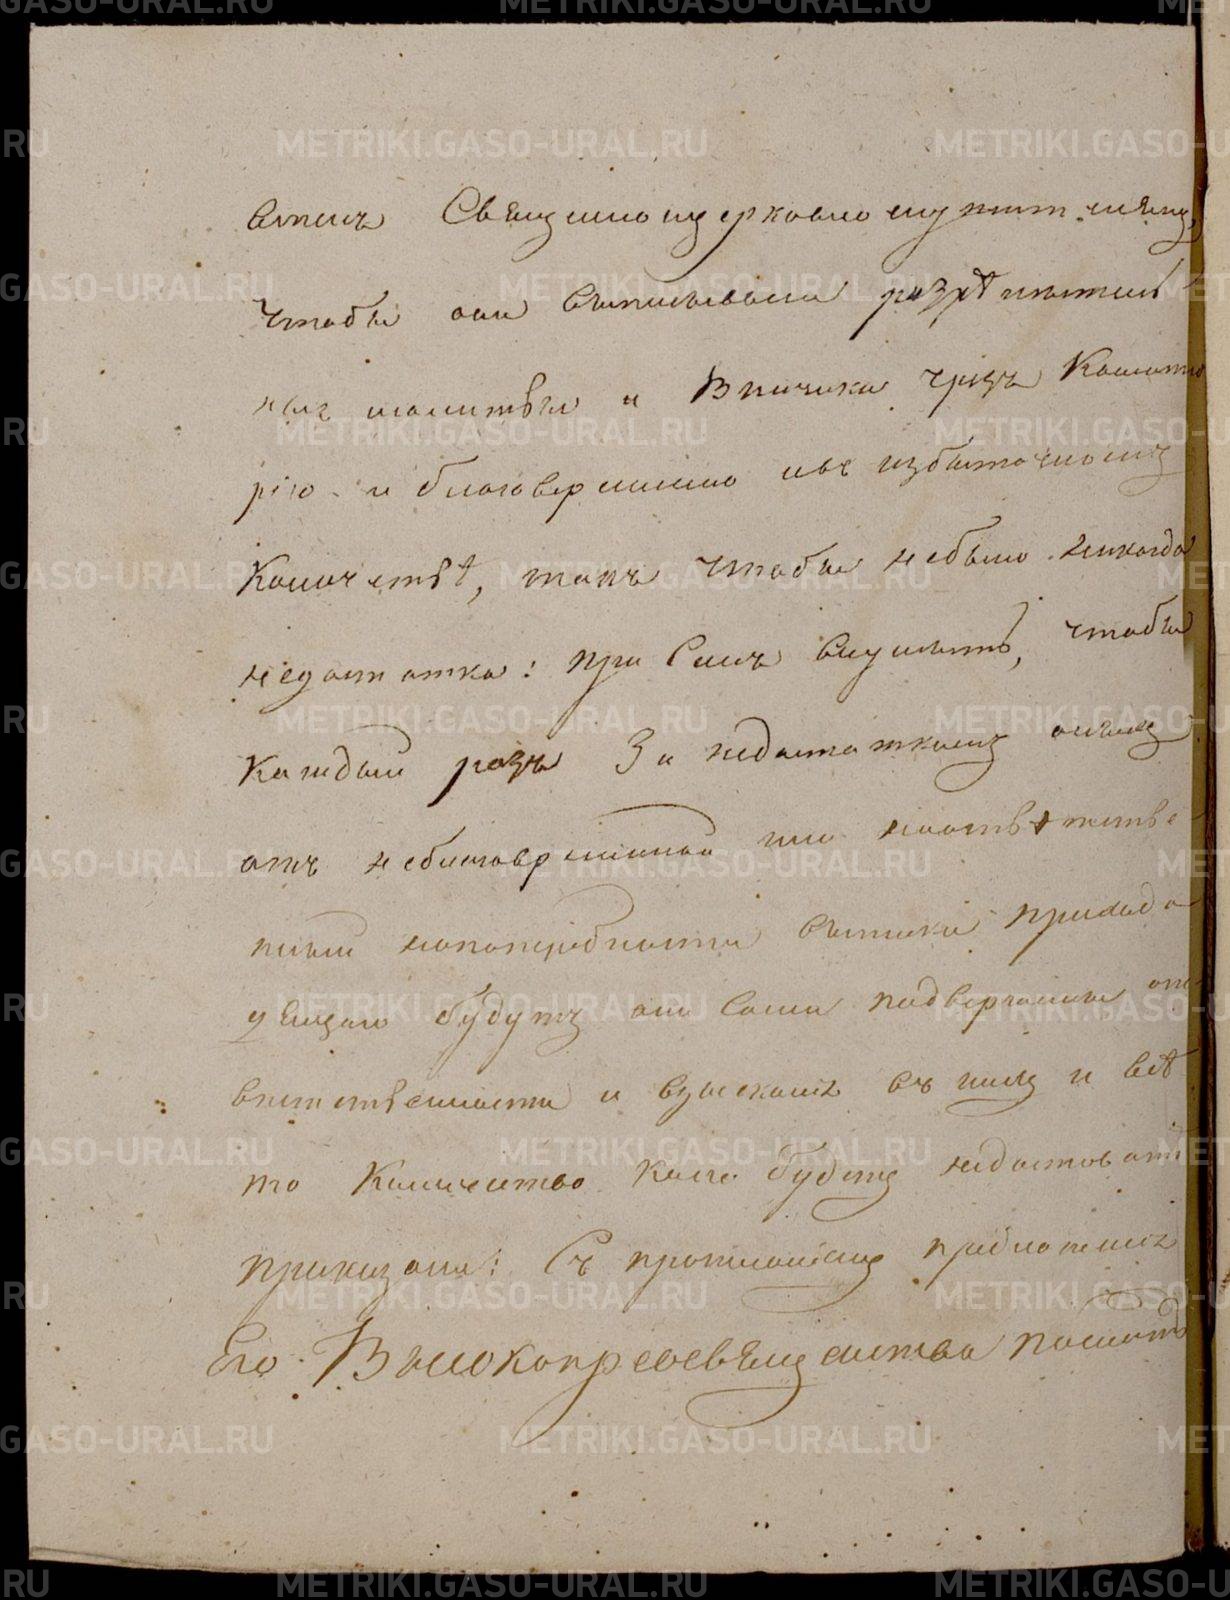 всемъ Священноцерковнослужителямъ,
чтобы они выписывали разрѣшитель
ныя молитвы и Венчики чрезъ Консисто
рію и благовременно и въ избыточномъ
Количествѣ, такъ чтобы небыло никогда
недостатка: при семъ внушить, чтобы
каждый разъ За недостаткомъ оныхъ
отъ неблаговременной или несоотвѣтстве
нной потребности выписки происхо
дящаго будутъ они сами подвергаемы от
вѣтственности и взысканъ съ нихъ и все
то Количество коего будетъ недоставать
приказали: Съ прописаніемъ предложенія
Его Высокопреосвященства послать